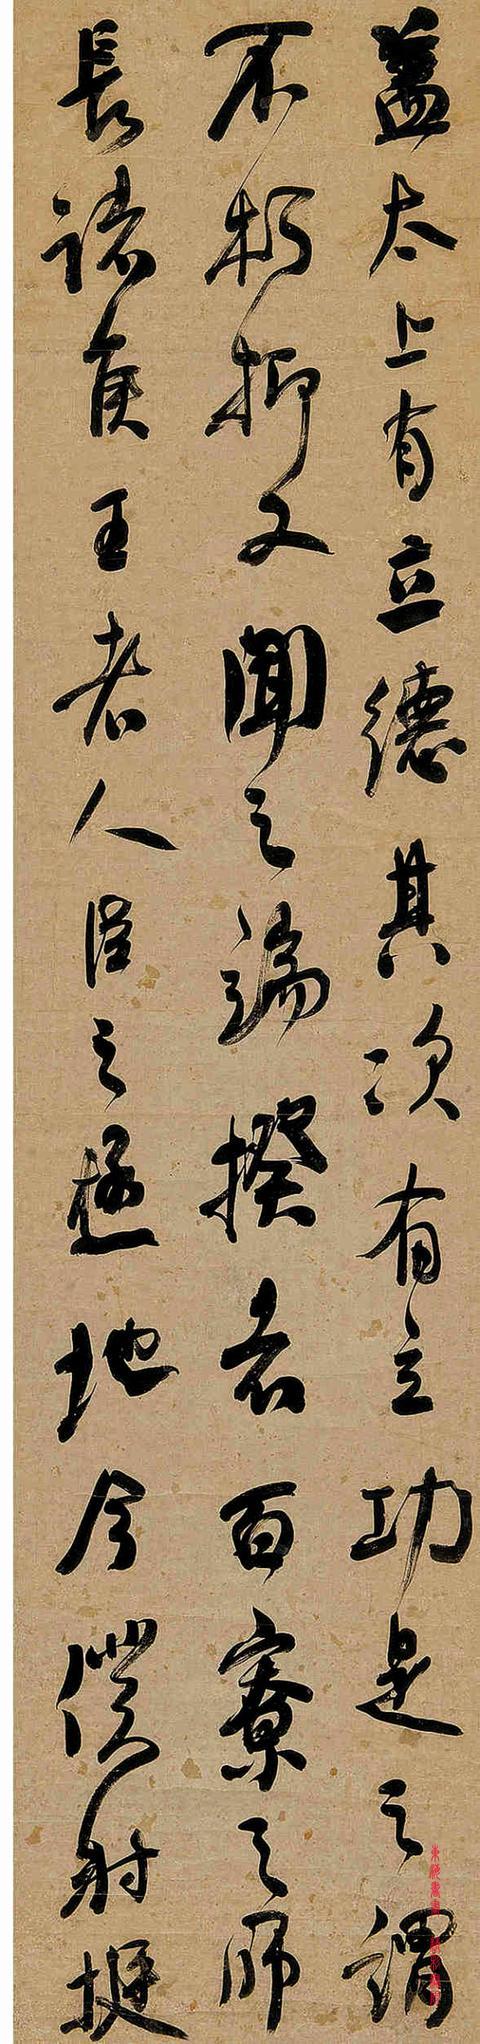 蓋太上有立德其次有立功是之謂
不朽抑又聞之端揆者百寮之師
長諸侯王者人臣之極地今僕射挺